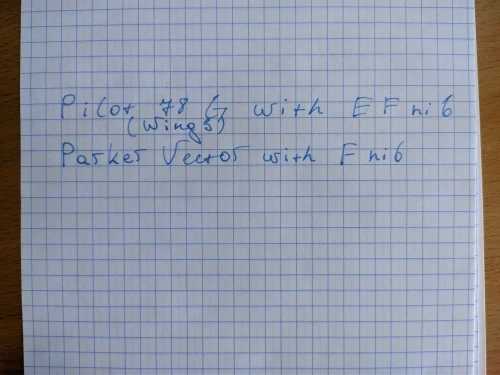 Pilot 78 G with EF nib
(Wing S)
Parker Vector with F nib